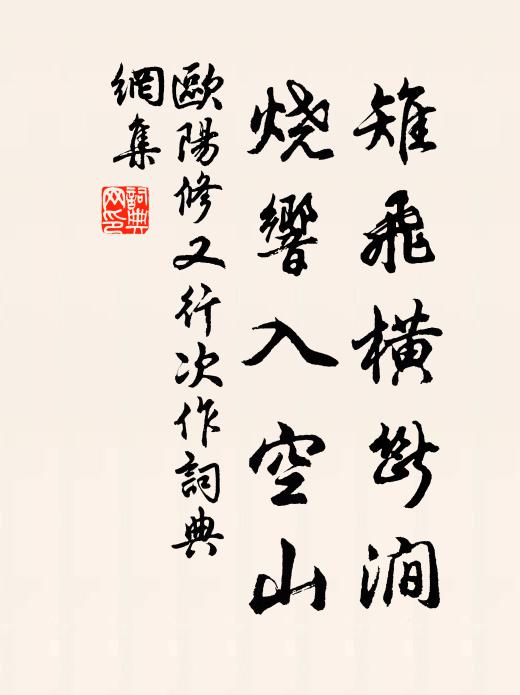 雉飛橫斷澗
烧響入空山
歐陽修又行次作詞典
網集
詞典
网印